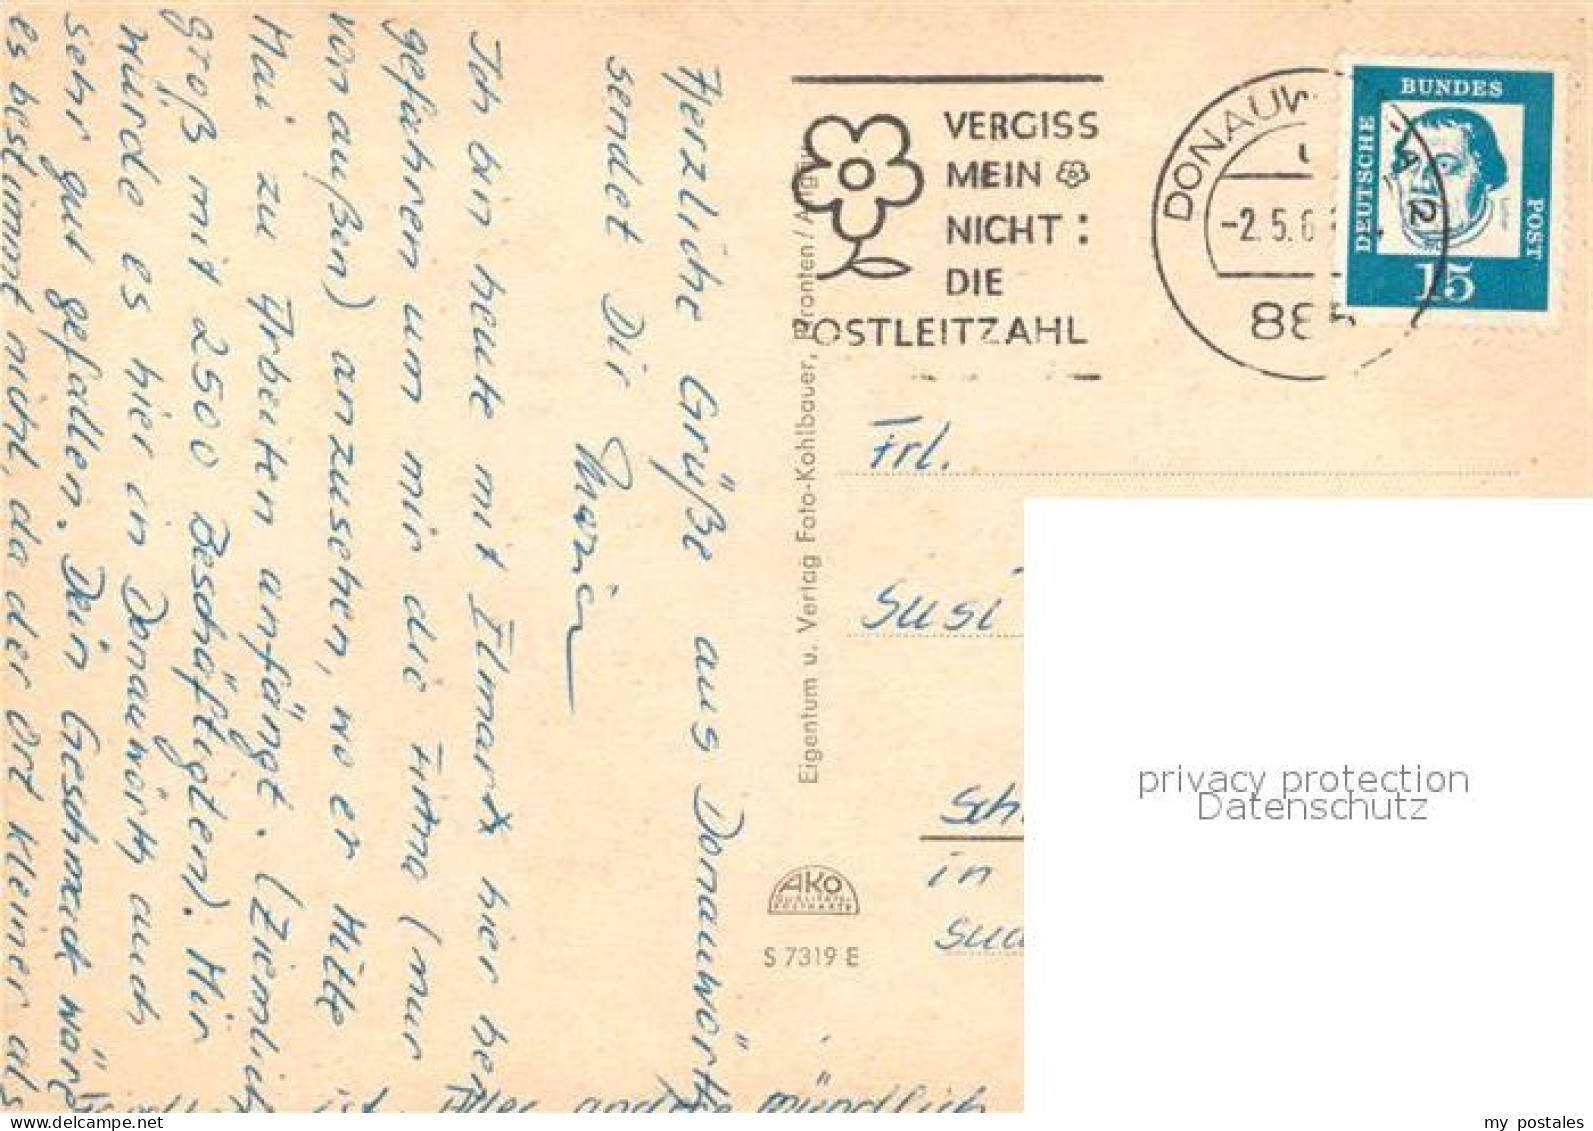 Herzliche Grüße aus Donauwörth
sendet Dir
Ich bin heute mit Elmar hier her
gefahren um mir die Firma (nur
von außen) anzusehen, wo er Mitte
Mai zu Arbeiten anfängt. (Ziemlich
groß mit 2500 Beschäftigten). Mir
würde es hier in Donauwörth auch
sehr gut gefallen. Dein Geschmack wäre
es bestimmt nicht, da der Ort kleiner als
ist. Alles andere mündlich
Eigentum u. Verlag Foto-Kohlbauer, Pfronten/Allgäu
AKO
QUALITÄTS-
POSTKARTE
S 7319 E
VERGISS
MEIN
NICHT:
DIE
POSTLEITZAHL
DONAUW
-2.5.6
885
DEUTSCHE
BUNDES
POST
15
Frl.
Susi
Sch
in
privacy protection
Datenschutz
my postales